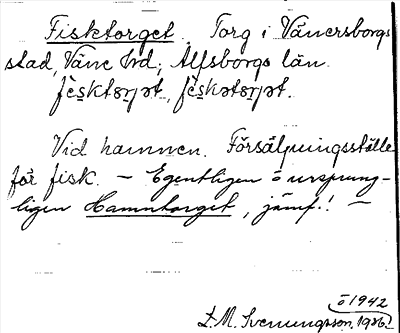 Fisktorget. Torg i Vänersborgs
stad, Väne hd, Älfsborgs län.
Vid hamnen. Försäljningsställe
för fisk. – Egentligen o ursprung-
ligen Hamntorget, jämf.! –
o 1942
L. M. Svenungsson, 1926.